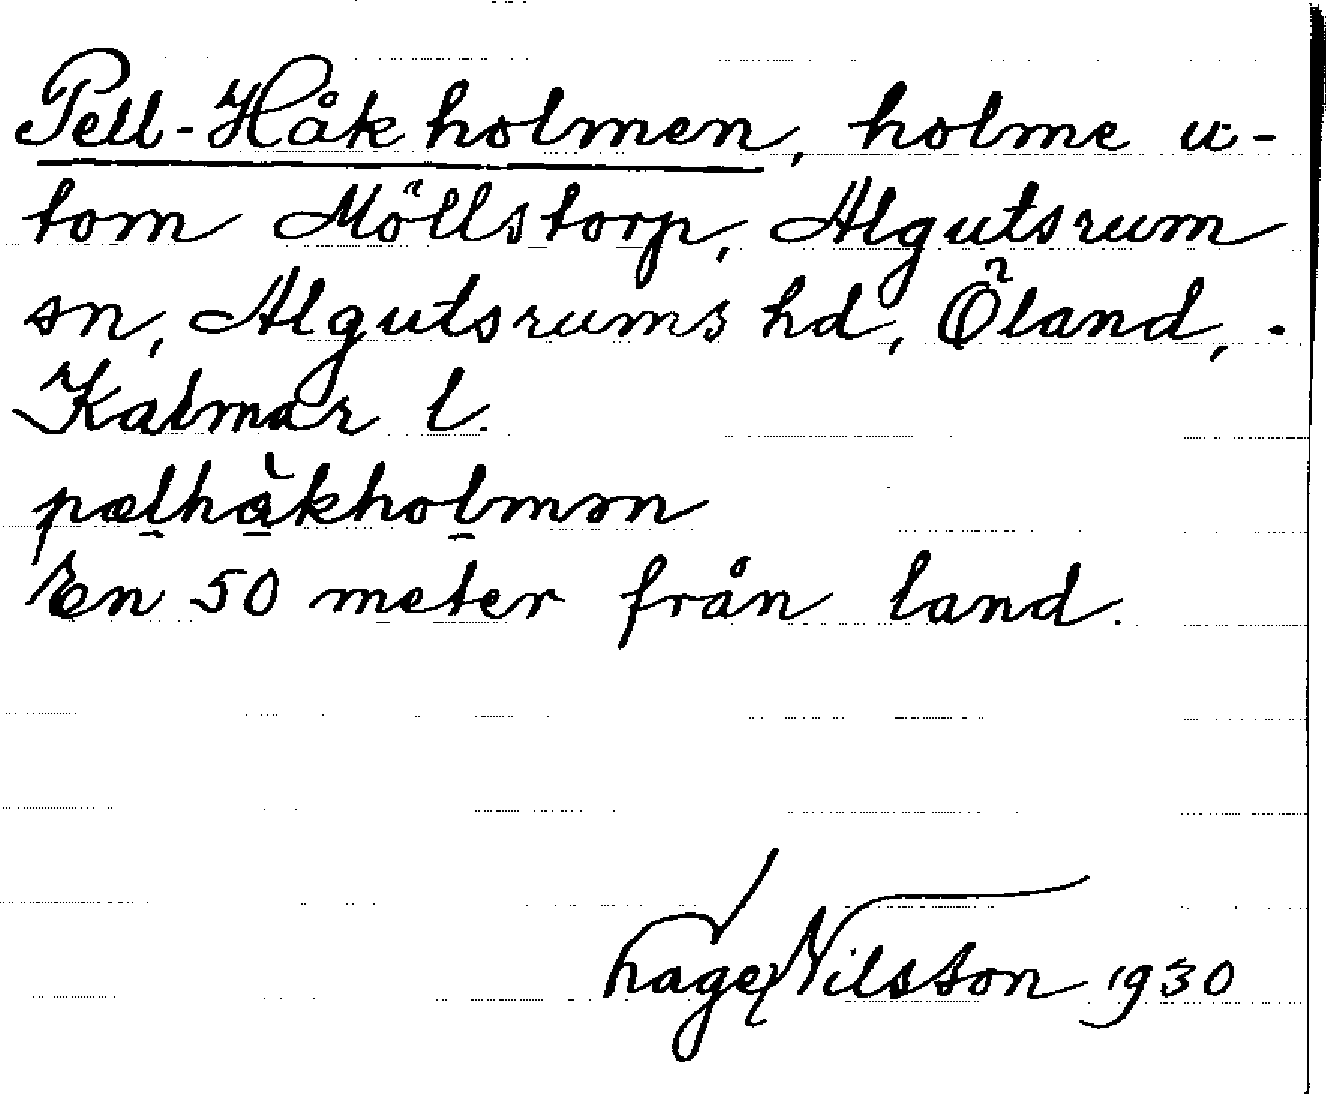 Pell-Håkholmen, holme u-
tom Möllstorp, Algutsrum
sn, Algutsrums hd, Öland,
Kalmar l.
pælhåkholmən
En 50 meter från land.
Hage Nilsson 1930